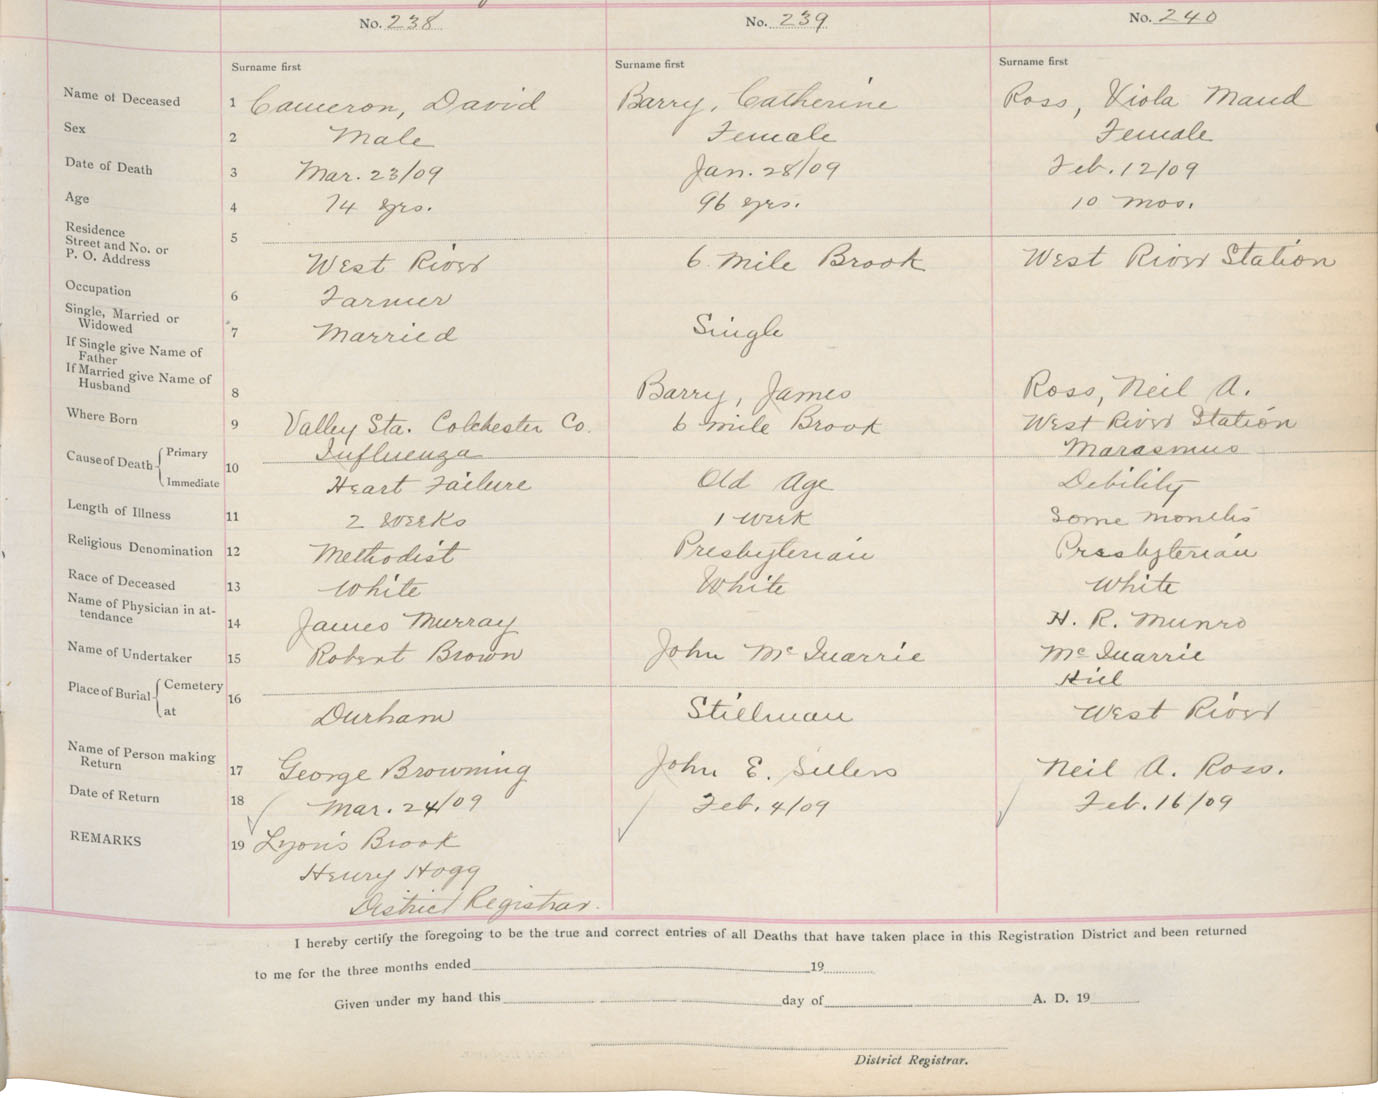 No. 238 No. 239 No. 240
Surname first Surname first Surname first
Name of Deceased 1 Cameron, David Barry, Catherine Ross, Viola Maud
Sex 2 Male Female Female
Date of Death 3 Mar. 23/09 Jan. 28/09 Feb. 12/09
Age 4 74 yrs. 96 yrs. 10 mos.
Residence 5
Street and No. or
P. O. Address West River 6 mile Brook West River Station
Occupation 6 Farmer
Single, Married or
Widowed 7 Married Single
If Single give Name of
Father
If Married give Name of
Husband 8 Barry, James Ross, Neil A.
Where Born 9 Valley Sta. Colchester Co. 6 mile Brook West River Station
Cause of Death Primary Influenza Marasmus
10
Immediate Heart Failure Old Age Debility
Length of Illness 11 2 weeks 1 week some months
Religious Denomination 12 Methodist Presbyterian Presbyterian
Race of Deceased 13 White White White
Name of Physician in at-
tendance 14 James Murray H. R. Munro
Name of Undertaker 15 Robert Brown John McQuarrie McQuarrie
Place of Burial Cemetery 16 Hill
at Durham Stillman West River
Name of Person making
Return 17 George Browning John E. Sellers Neil A. Ross.
Date of Return 18 Mar. 24/09 Feb. 4/09 Feb. 16/09
REMARKS 19 Lyon's Brook
Henry Hogg
District Registrar.
I hereby certify the foregoing to be the true and correct entries of all Deaths that have taken place in this Registration District and been returned
to me for the three months ended 19
Given under my hand this day of A. D. 19
District Registrar.